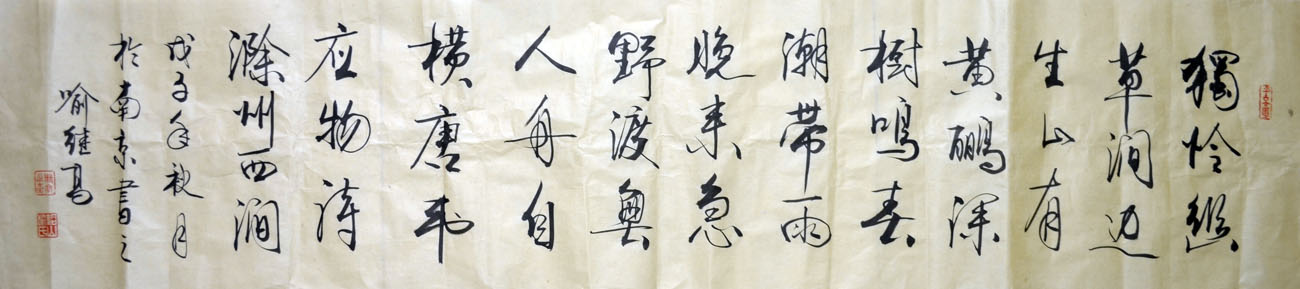 獨怜幽
草澗边
生上有
黄鹂深
樹鳴春
潮帶雨
晚来急
野渡無
人舟自
横唐韦
应物詩
滁州西澗
戊子年秋月
於南京書之
喻继高